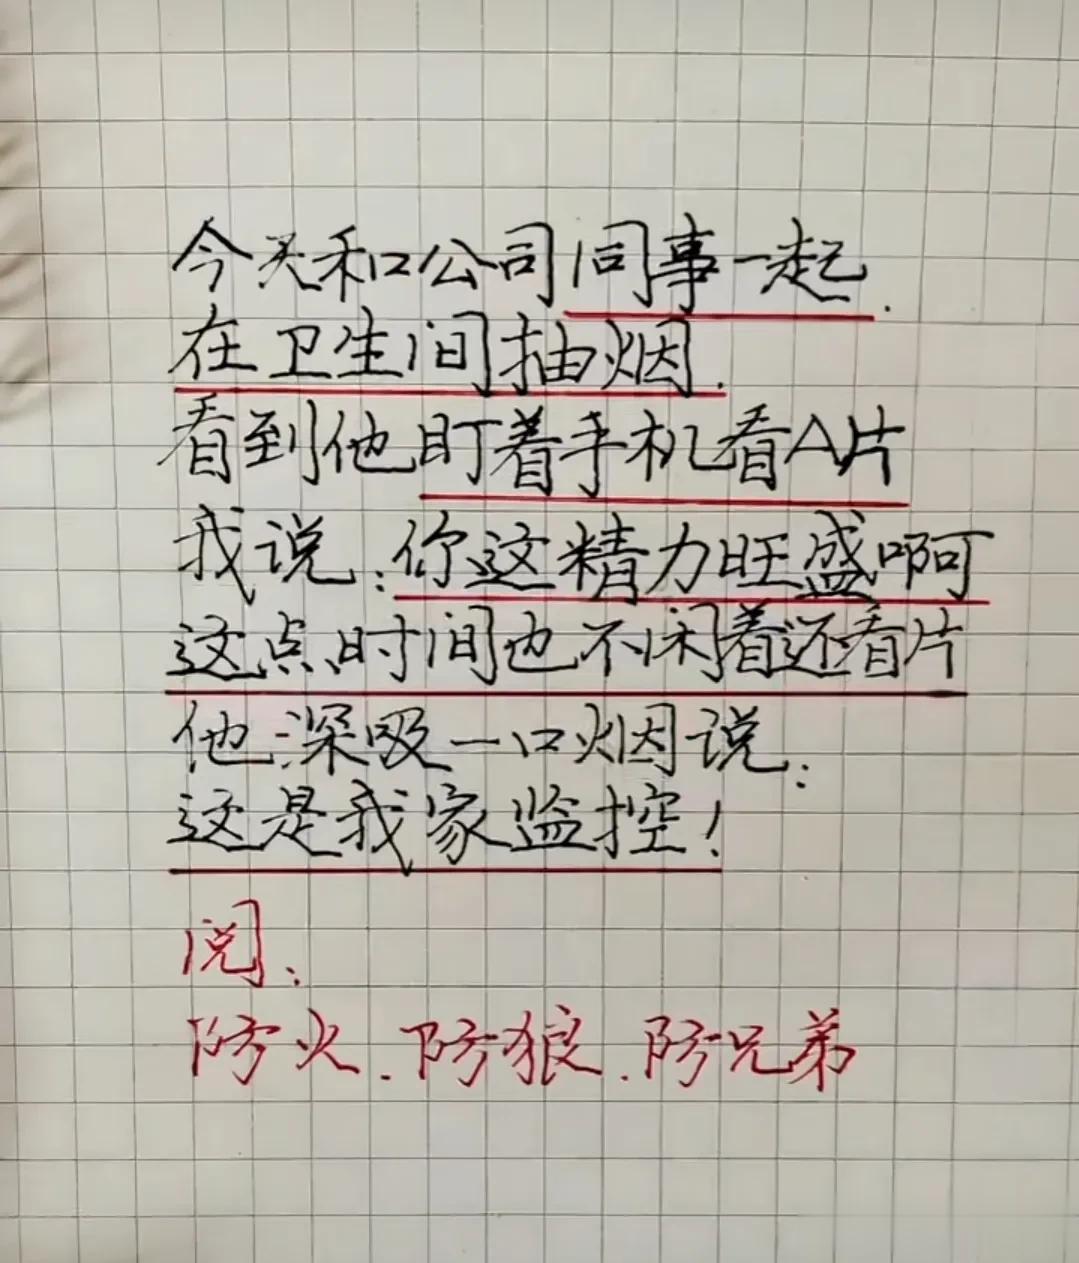 今天和公司同事一起.
在卫生间抽烟.
看到他盯着手机看A片
我说:你这精力旺盛啊
这点时间也不闲着还看片
他深吸一口烟说:
这是我家监控!
阅:
防火.防狼.防兄弟